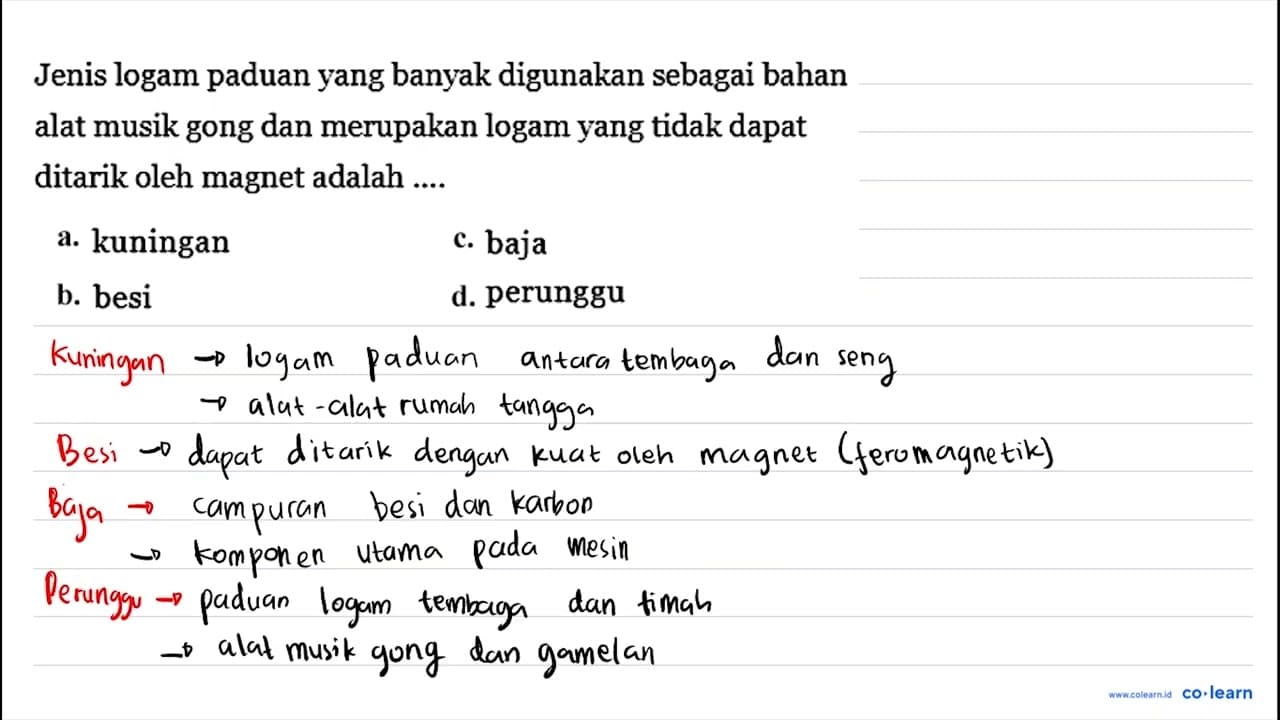 Jenis logam paduan yang banyak digunakan sebagai bahan
alat musik gong dan merupakan logam yang tidak dapat
ditarik oleh magnet adalah ....
a. kuningan
c. baja
b. besi
d. perunggu
Kuningan → logam paduan antara tembaga dan seng
→ alat-alat rumah tangga
Besi → dapat ditarik dengan kuat oleh magnet (feromagnetik)
Baja → campuran besi dan karbon
→ komponen utama pada mesin
Perunggu → paduan logam tembaga dan timah
→ alat musik gong dan gamelan
www.colearn.id co·learn